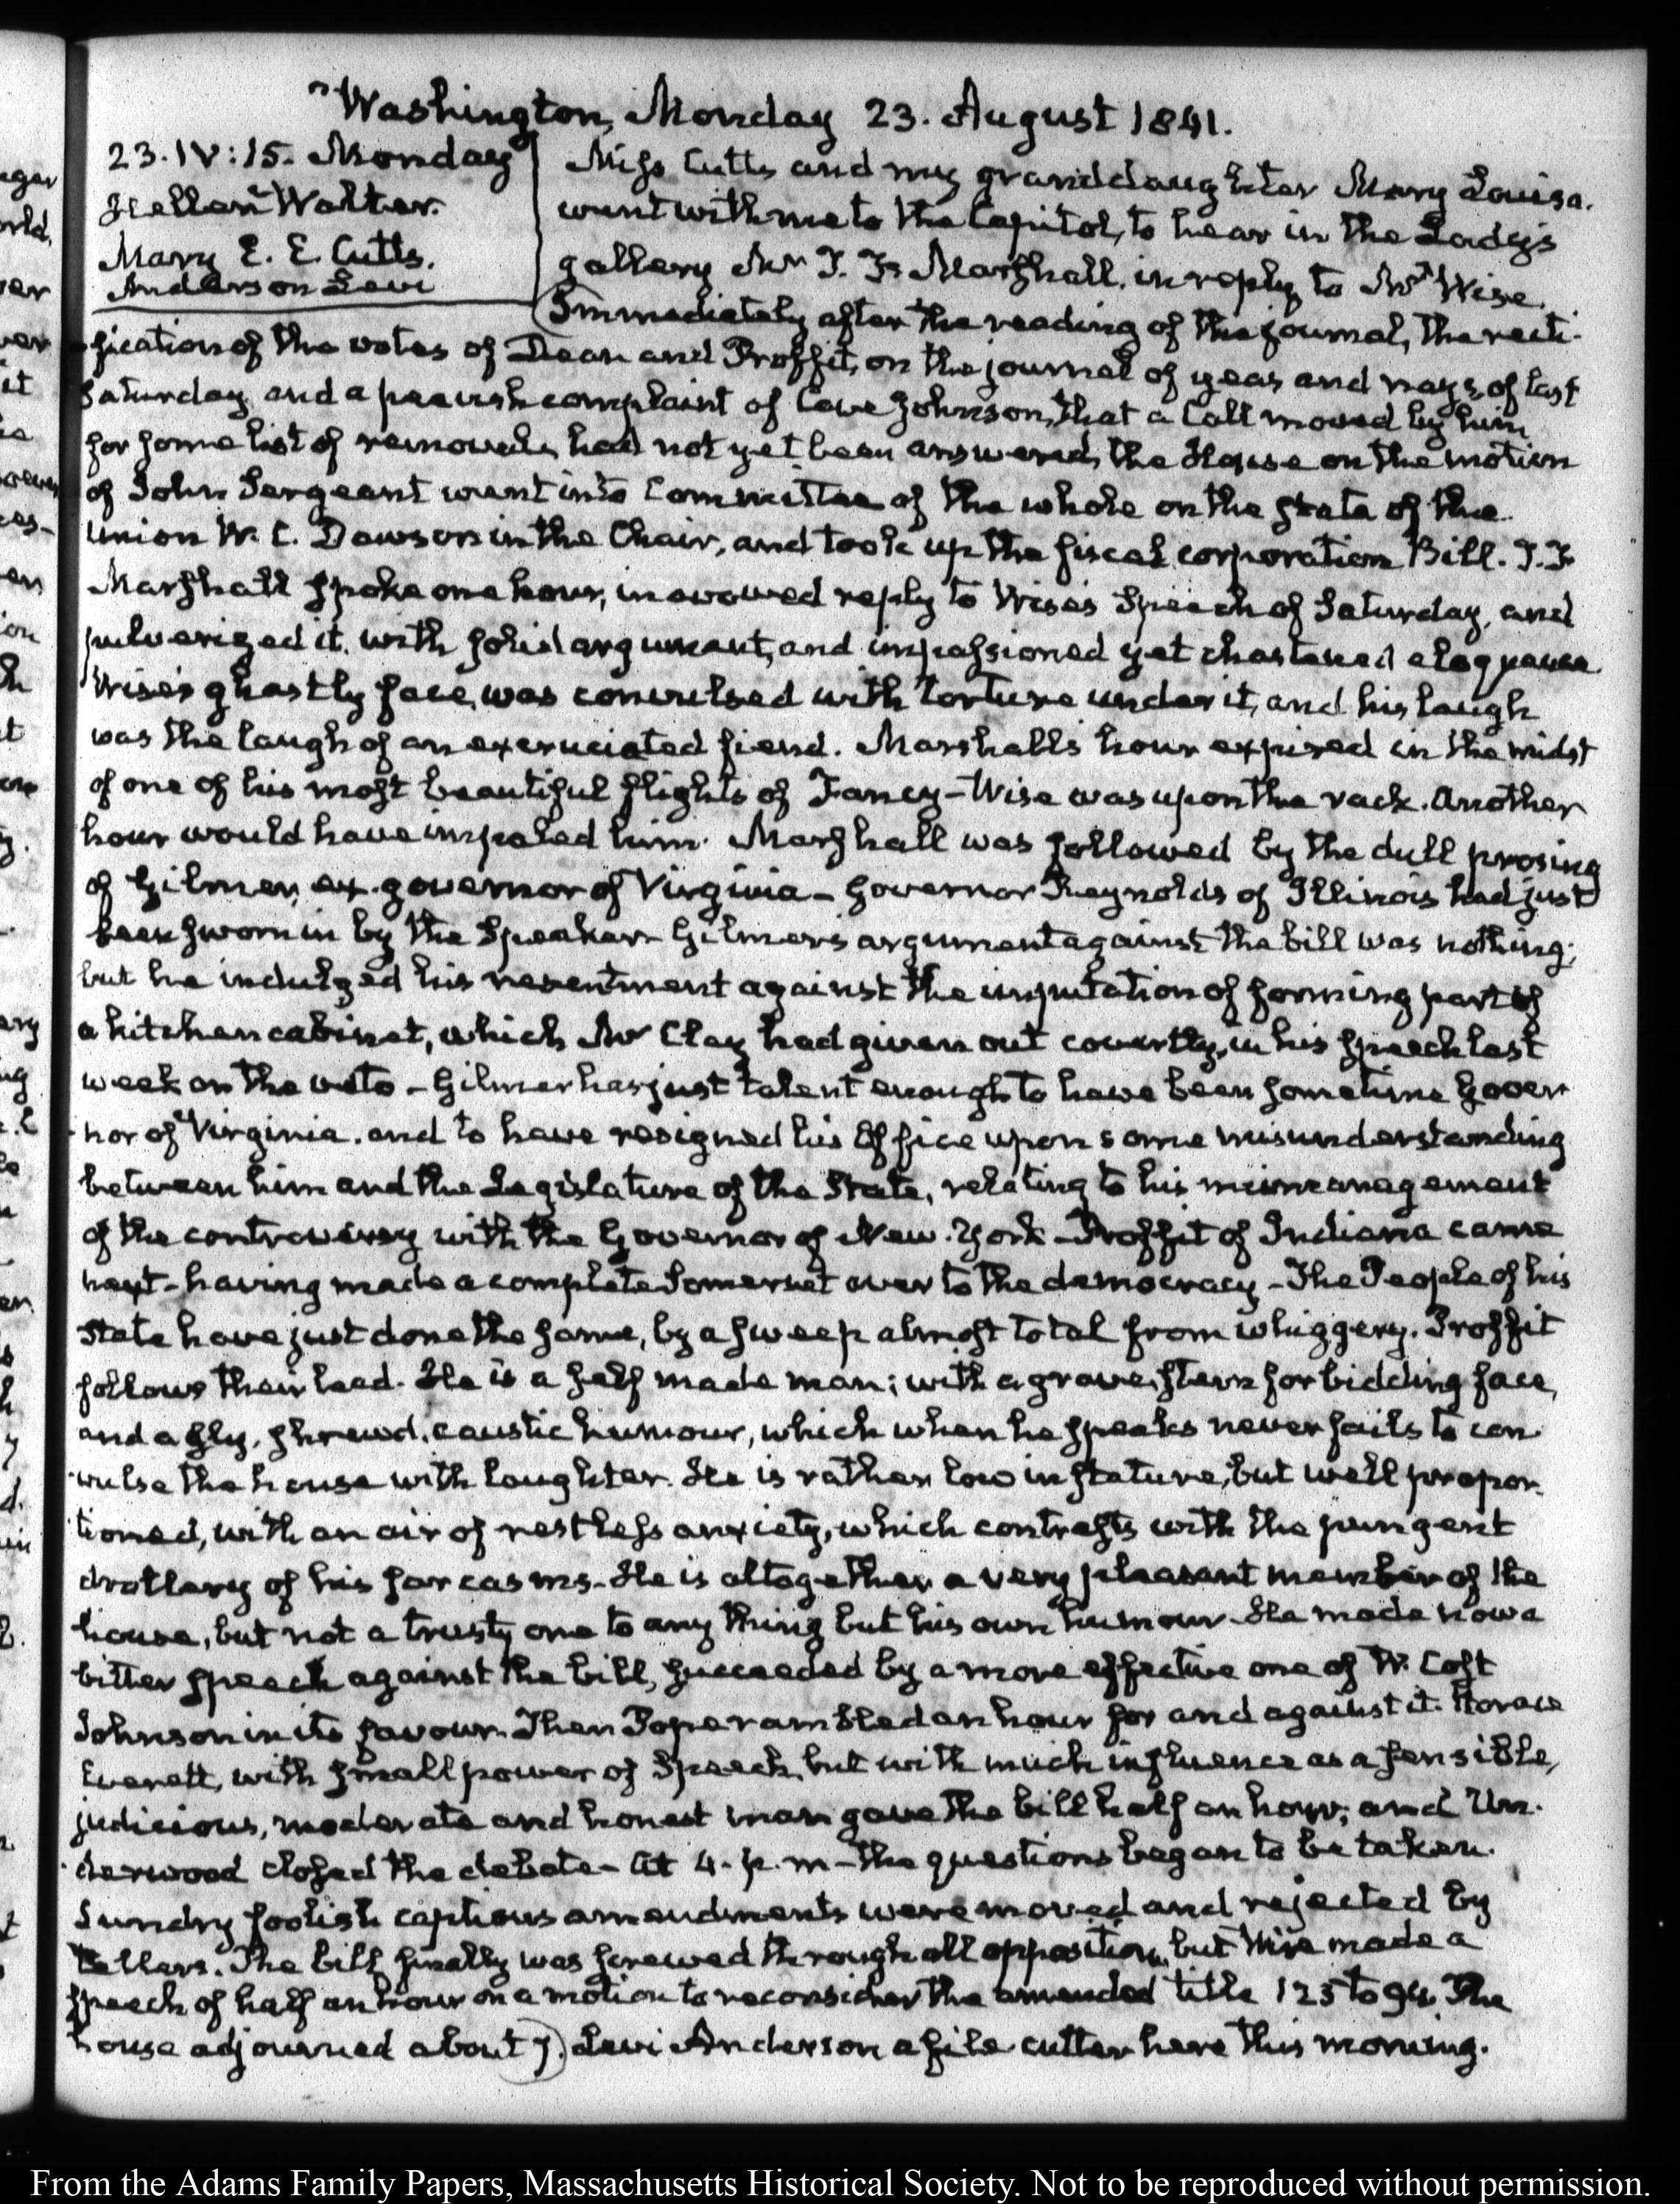 Washington, Monday 23. August 1841.
23. IV:15. Monday
Hellen Walter.
Mary E. E. Cutts.
Anderson Levi
Miss Cutts and my granddaughter Mary Louisa.
went with me to the Capitol, to hear in the Lady's
gallery Mr T. F. Marshall, in reply to Mr Wise.
Immediately after the reading of the journal, the recti-
fication of the votes of Dean and Proffit, on the journal of yeas and nays, of last
Saturday, and a peevish complaint of Cave Johnson, that a Call moved by him
for some list of removals, had not yet been answered, the House on the motion
of John Sergeant went into Committee of the whole on the state of the
Union W. C. Dawson in the Chair, and took up the fiscal corporation Bill. T. F.
Marshall spoke one hour, in avowed reply to Wise's Speech of Saturday, and
pulverized it, with solid argument, and impassioned yet chastened eloquence
Wise's ghastly face, was convulsed with torture under it, and his laugh
was the laugh of an excruciated fiend. Marshall's hour expired in the midst
of one of his most beautiful flights of Fancy - Wise was upon the rack. Another
hour would have impaled him. Marshall was followed by the dull prosing
of Gilmer, ex-governor of Virginia - Governor Reynolds of Illinois had just
been sworn in by the Speaker - Gilmer's argument against the bill was nothing;
but he indulged his resentment against the imputation of forming part of
a kitchen cabinet, which Mr Clay had given out covertly, in his speech last
week on the veto - Gilmer has just talent enough to have been sometime Gover-
nor of Virginia, and to have resigned his Office upon some misunderstanding
between him and the Legislature of the State, relating to his mismanagement
of the controversy with the Governor of New-York - Proffit of Indiana came
next - having made a complete Somerset over to the democracy - The People of his
State have just done the same, by a sweep almost total from whiggery. Proffit
follows their lead. He is a self made man; with a grave, stern forbidding face,
and a sly, shrewd, caustic humour, which when he speaks never fails to con-
vulse the house with laughter. He is rather low in stature, but well propor-
tioned, with an air of restless anxiety, which contrasts with the pungent
drollery of his sarcasms - He is altogether a very pleasant member of the
house, but not a trusty one to any thing but his own humour - He made now a
bitter speech against the bill, succeeded by a more effective one of W. Cost
Johnson in its favour. Then Pope rambled an hour for and against it. Horace
Everett, with small power of Speech, but with much influence as a sensible,
judicious, moderate and honest man gave the bill half an hour; and Un-
derwood closed the debate - At 4. p. m - the questions began to be taken.
Sundry foolish captious amendments were moved and rejected by
tellers. The bill finally was screwed through all opposition, but Wise made a
speech of half an hour on a motion to reconsider the amended title 125 to 94. The
house adjourned about 7. Levi Anderson a file cutter here this morning.
From the Adams Family Papers, Massachusetts Historical Society. Not to be reproduced without permission.